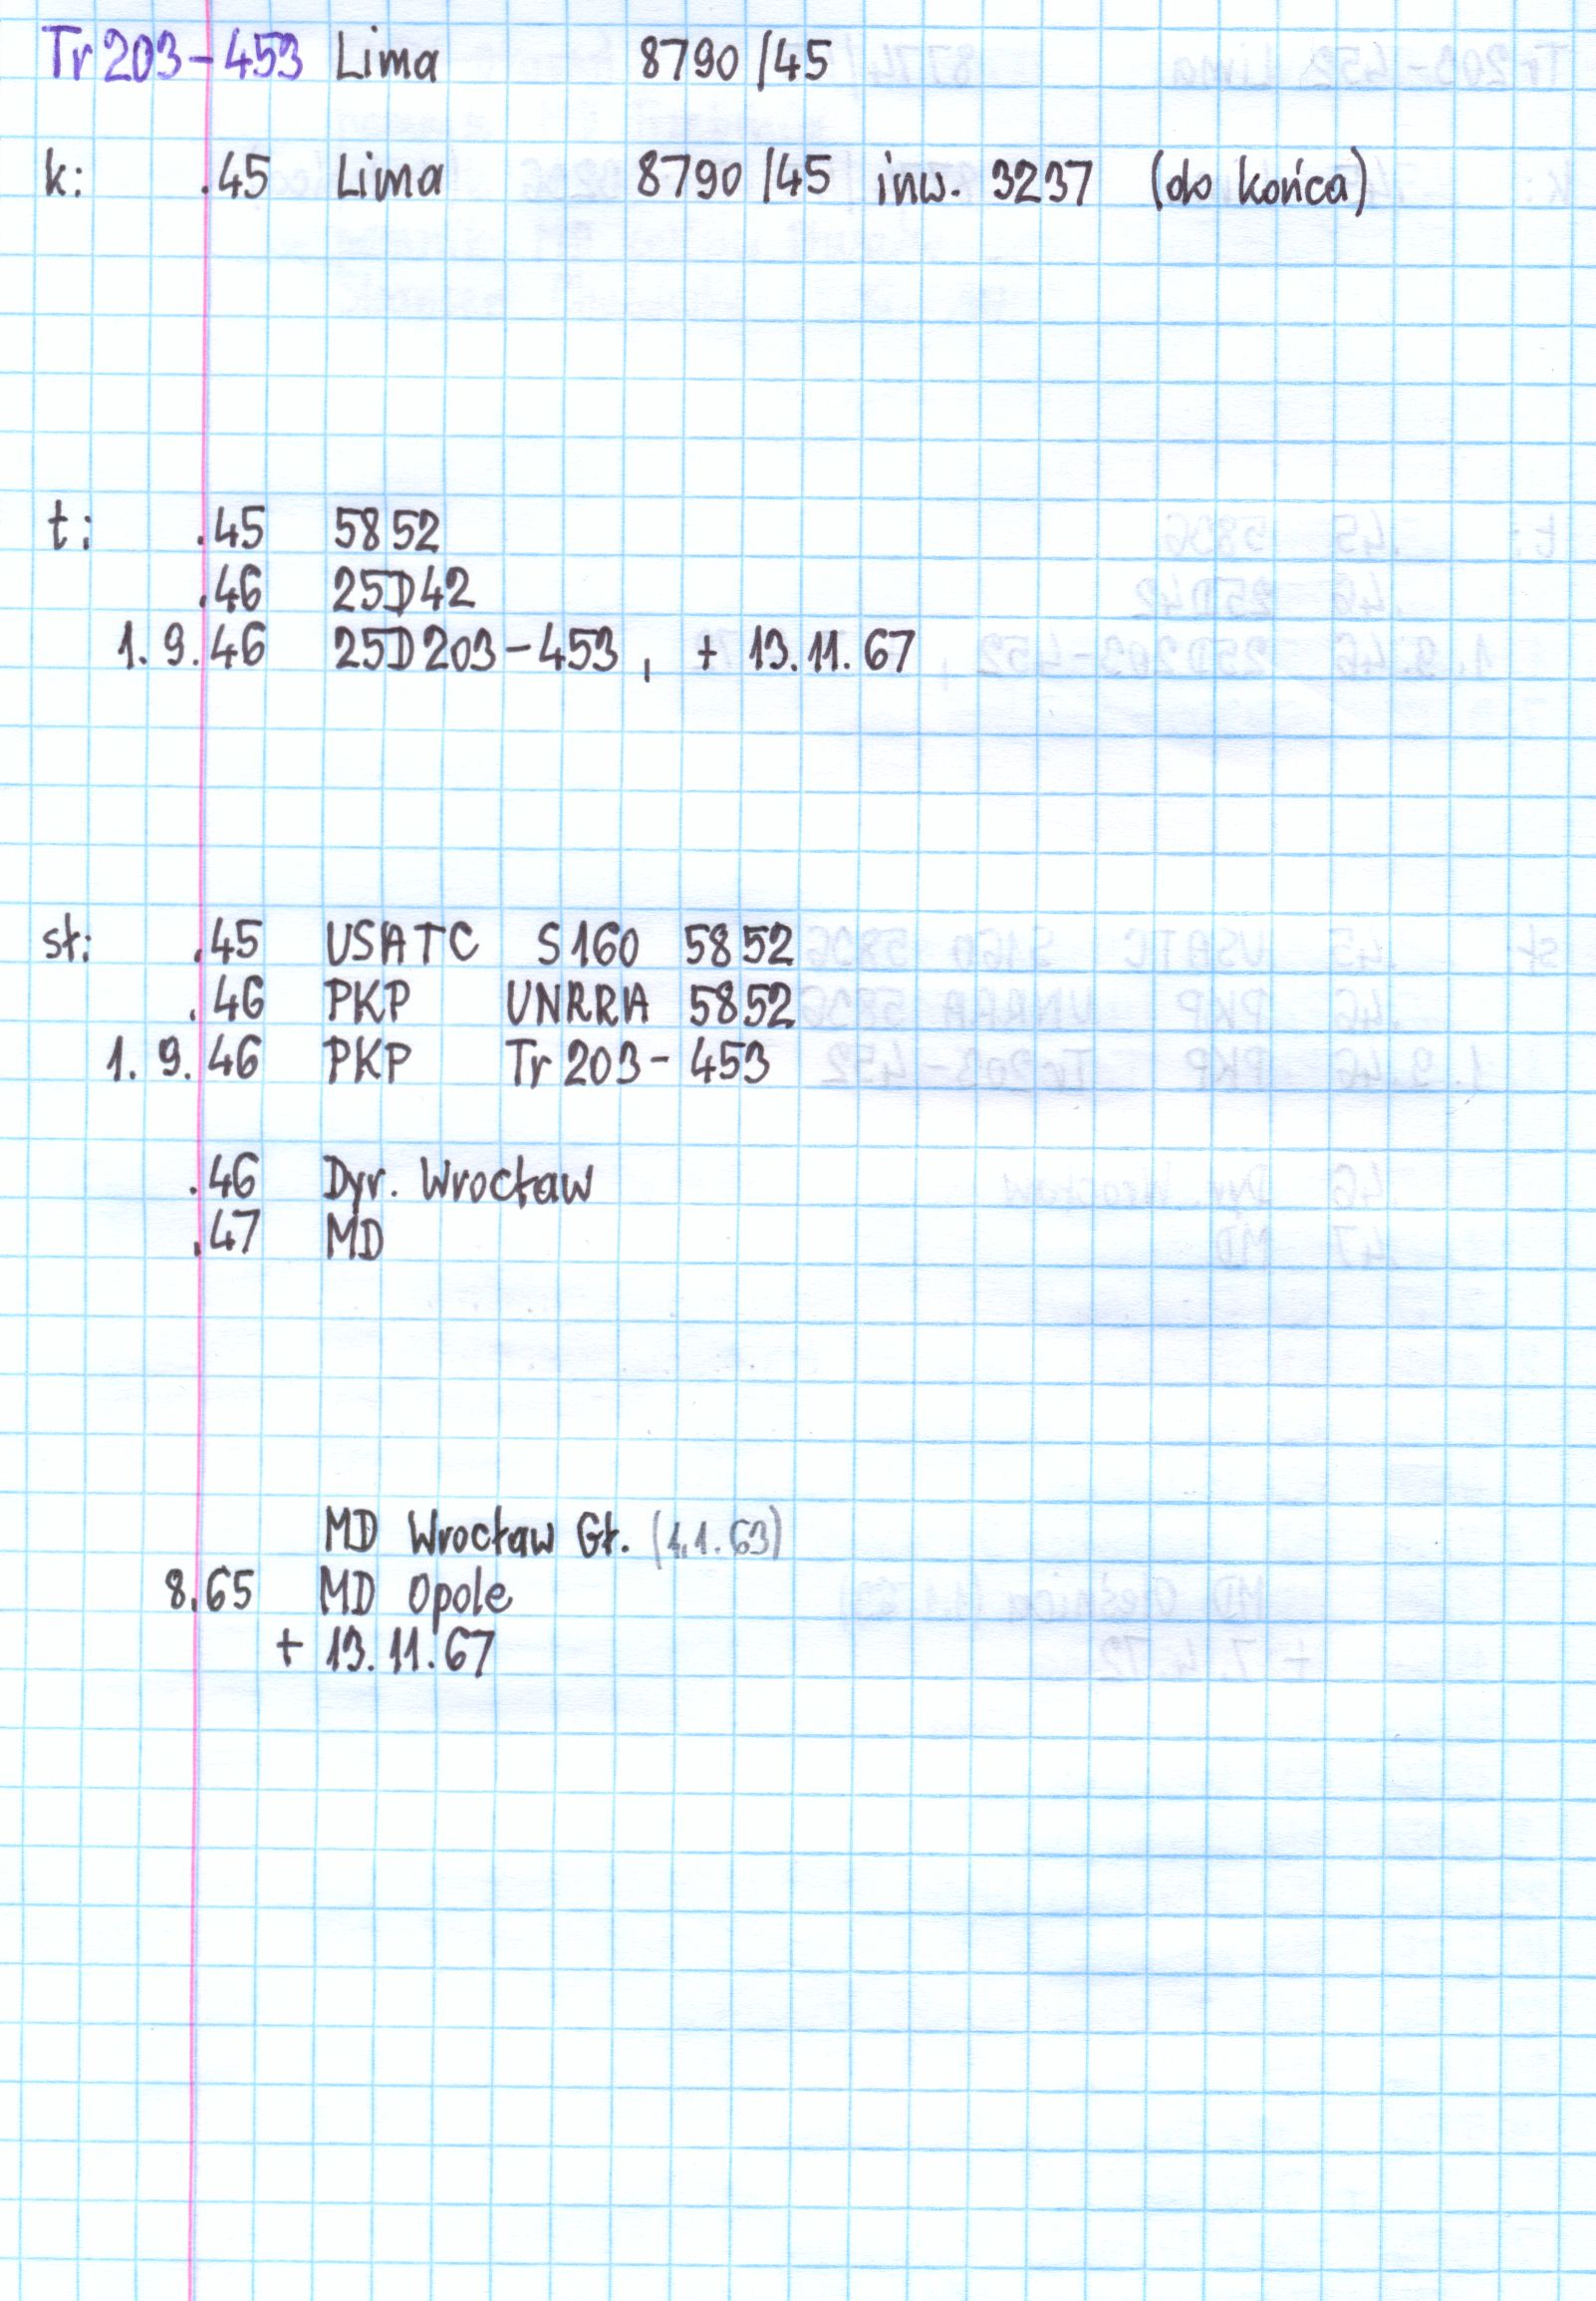 Tr203-453 Lima 8790/45
k: .45 Lima 8790/45 inw. 3237 (do końca)
t: .45 5852
.46 25D42
1.9.46 25D203-453, + 13.11.67
st: .45 USATC S160 5852
.46 PKP UNRRA 5852
1.9.46 PKP Tr203-453
.46 Dyr. Wrocław
.47 MD
MD Wrocław Gł. (1.1.63)
8.65 MD Opole
+ 13.11.67